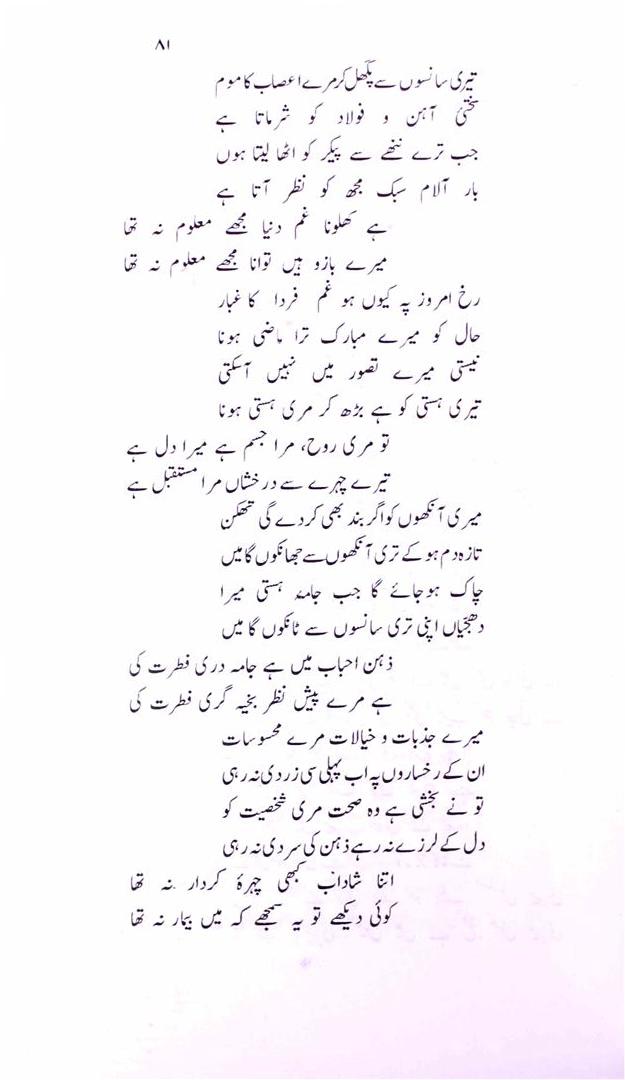 ۸۱
تیری سانسوں سے پگھل کر مرے اعصاب کا موم
سختئ آہن و فولاد کو شرماتا ہے
جب ترے ننھے سے پیکر کو اٹھا لیتا ہوں
بار آلام سبک مجھ کو نظر آتا ہے
ہے کھلونا غم دنیا مجھے معلوم نہ تھا
میرے بازو ہیں توانا مجھے معلوم نہ تھا
رخ امروز پہ کیوں ہو غم فردا کا غبار
حال کو میرے مبارک ترا ماضی ہونا
نیستی میرے تصور میں نہیں آسکتی
تیری ہستی کو ہے بڑھ کر مری ہستی ہونا
تو مری روح، مرا جسم ہے میرا دل ہے
تیرے چہرے سے درخشاں مرا مستقبل ہے
میری آنکھوں کو اگر بند بھی کردے گی تھکن
تازہ دم ہو کے تری آنکھوں سے جھانکوں گا میں
چاک ہو جائے گا جب جامۂ ہستی میرا
دھجیاں اپنی تری سانسوں سے ٹانکوں گا میں
ذہن احباب میں ہے جامہ دری فطرت کی
ہے مرے پیش نظر بخیہ گری فطرت کی
میرے جذبات و خیالات مرے محسوسات
ان کے رخساروں پہ اب پہلی سی زردی نہ رہی
تو نے بخشی ہے وہ صحت مری شخصیت کو
دل کے لرزے نہ رہے ذہن کی سردی نہ رہی
اتنا شاداب کبھی چہرۂ کردار نہ تھا
کوئی دیکھے تو یہ سمجھے کہ میں بیمار نہ تھا